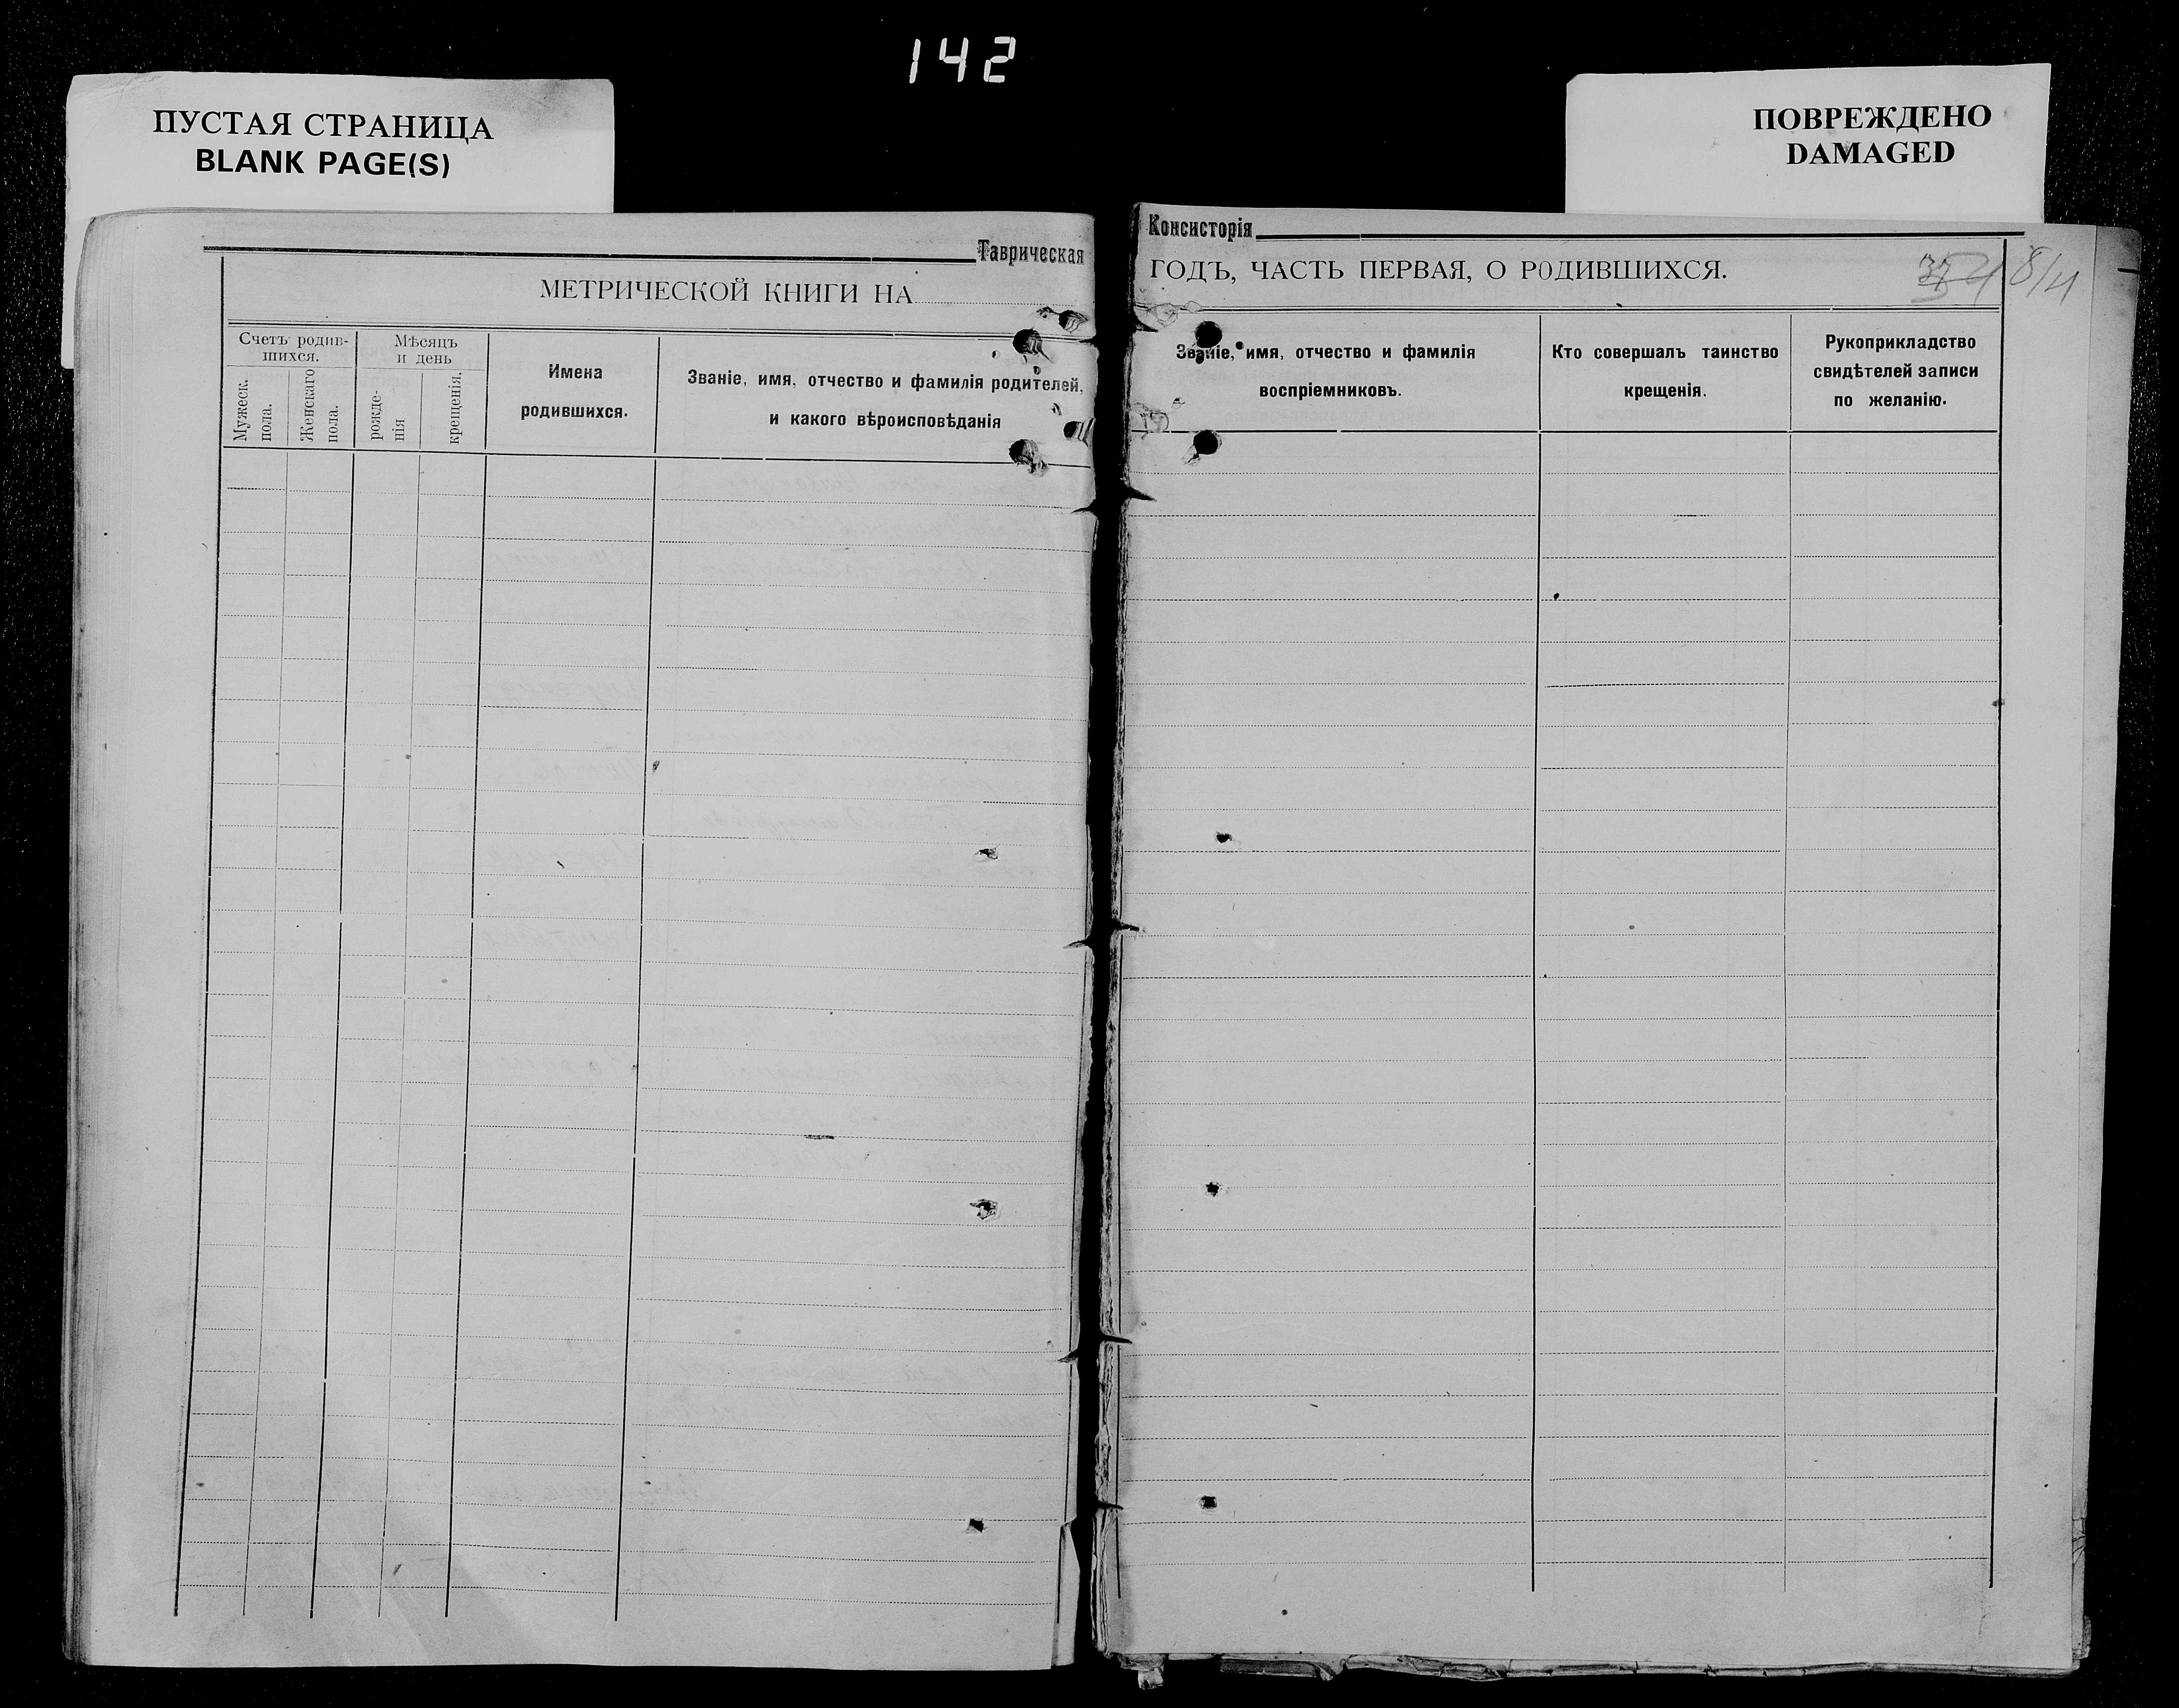 142
ПУСТАЯ СТРАНИЦА
BLANK PAGE(S)
ПОВРЕЖДЕНО
DAMAGED
Таврическая
МЕТРИЧЕСКОЙ КНИГИ НА
Счетъ родив-
шихся.
Мужеск.
пола.
Женскаго
пола.
Мѣсяцъ
и день
рожде-
нія
крещенія.
Имена
родившихся.
Званіе, имя, отчество и фамилія родителей,
и какого вѣроисповѣданія
Консисторія
ГОДЪ, ЧАСТЬ ПЕРВАЯ, О РОДИВШИХСЯ.
Званіе, имя, отчество и фамилія
воспріемниковъ.
Кто совершалъ таинство
крещенія.
Рукоприкладство
свидѣтелей записи
по желанію.